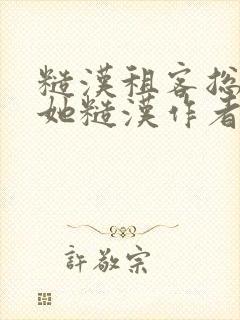 糙漢租客抝
她糙漢作者
許敬宗